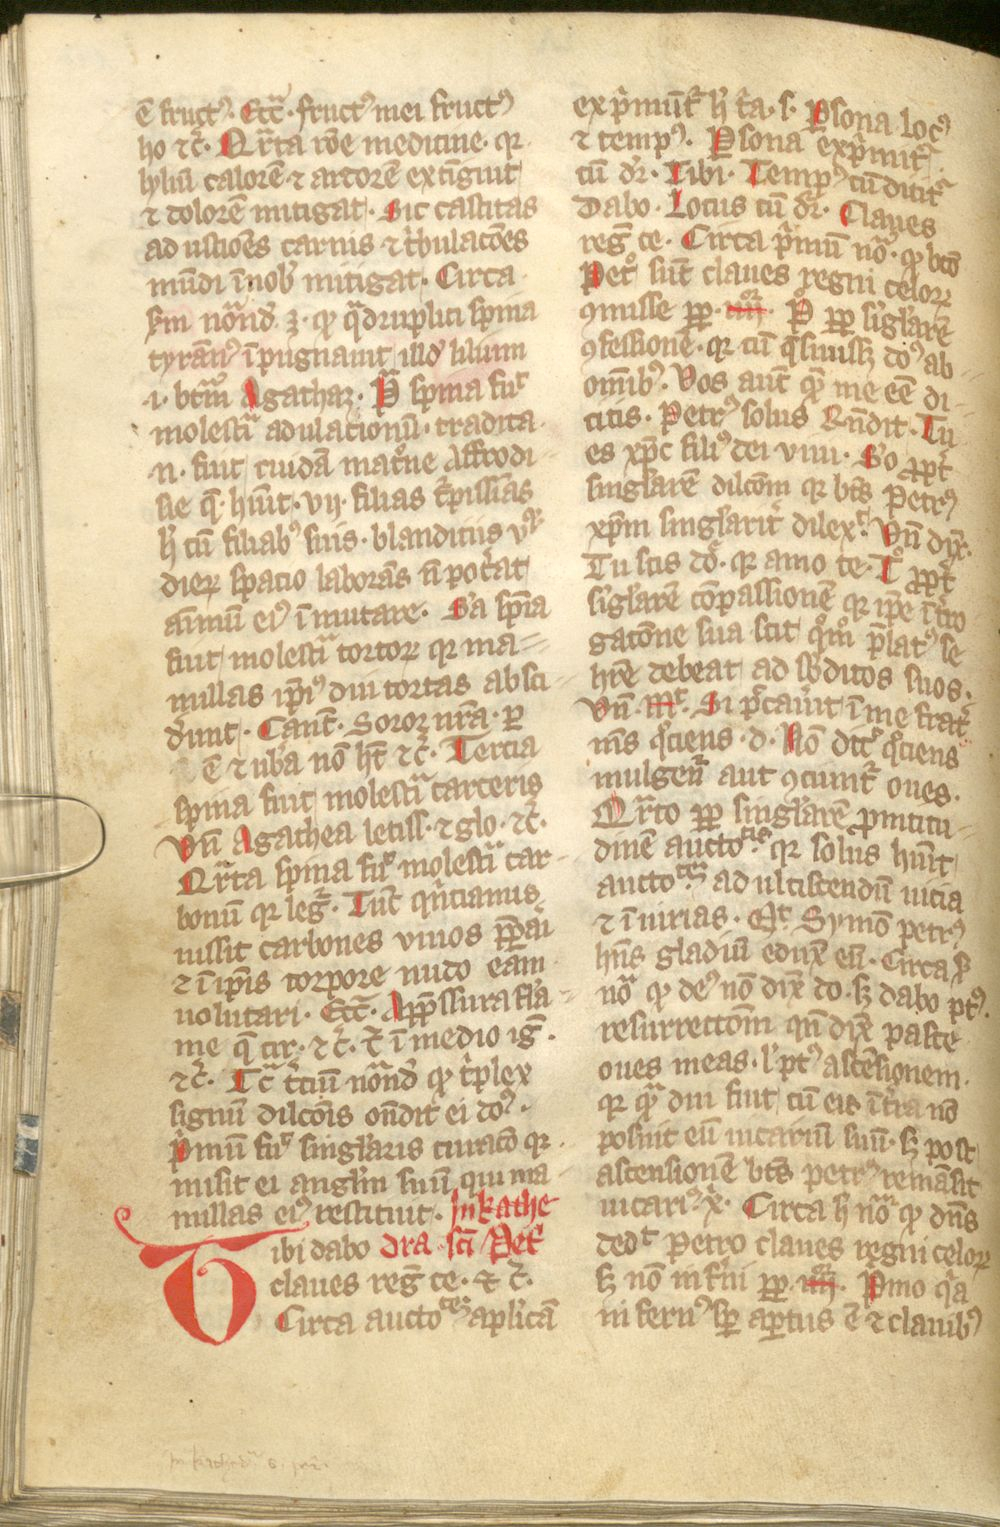 ē fruct⁹. Ecc̄. fruct⁹ mei fruct⁹
ho ⁊c̄. Qrta rōe medicine. qr
lyliū calorē ⁊ ardorē extīguit
⁊ dolorē mitigat. Sic castitas
ad ustiōes carnis ⁊ t̾bulacōes
mūdi ī nob̾ mitigat. Circa
sm̄ notand̾. ꝫ. qͦ qͣdruplici spina
tyrān⁹ īpugnauit illd̾ liliuʒ
.i. btm̄ Agathaʒ. Pͣ spina fuͭ
molestiͣ adulacionū. tradita
.n. fuit cuidā matͦne Affrodi-
sie q̄. huit. vij. filias t̾pissīas
h̾ cū filiab⁹ suis. blandiciis
dieꝝ spacio laborās nͦ pot̾at
aīmū ei⁹ īmutare. Sͣa spīa
fuit molestiͣ tortoꝝ qr ma=
millas ip̄i⁹ diu tortas absci
d̾unt. Canͭ. Soror nr̄a. p
ē ⁊ ub̾a nō hꝫ ⁊c̄. Tercia
spina fuit molestiͣ carceris
Vn̄ Agathea letiss. ⁊ glo. ⁊c̄.
Qrta spina fuͭ molestiͣ car-
bonū qr leg̾. Tūc qn̄cianus
iussit carbones viuos
⁊ ī ip̄is corpore nudo eam
uolutari. Ecc̄. A p̄ssura flā=
me q̄ cir. ⁊c̄. ⁊ ī medio iḡ.
⁊c̄. Tͨͣ t̾ciū notand̾ qͦ t̾plex
signū dilcōis ondit ei dō⁹.
pͥmū fuͭ singlaris curacō qr
misit ei angl̾m suū qui ma
millas ei⁹ restituit. In kathe
Tibi dabo dra sc̄i Pet̾
claues reḡ ce. ⁊ c̄.
Circa auctoͭᵉᵐ aplicā
expͥmūt̾ h̾ t̾a. s. Psona loc⁹
⁊ temp⁹. Psona expͥmit̾
cū dr̄. Tibi. Temp⁹ cū dicit̾
Dabo. Locus cū dr̄. Claues
reḡ ce. Circa pͥmū nō. qͦ btō
Petͦ sūt claues regni celoꝝ
ꝯmisse pp. iiijͬ. Pͦ pp sīglarē
ꝯfessionē. qr cū q̄siuissꝫ dō⁹ ab
omīb⁹. Vos aut̄ qͤ me eē di-
citis. Petr⁹ solus Rn̄dit. Tu
es xp̄c fili⁹ dei viui. Sͦo ppͭ
singlarē dilcōm qr bt̄s Petr⁹
xp̄m singlarit̾ dilexͭ. Vn̄ dix̄.
Tu scis dō. qr amo te. Tͦ ppͭ
sīglarē cōpassionē qr ip̄e īt̾ro
gacōne sua scit qͦmō p̄lat⁹ se
hr̄e debeat ad sb̾ditos suos.
Vn̄. Mͭ. Si p̄cau̾it ī me frat̾
mͥs qͦciens. d. Nō dic̄ qͦciens
mulgent̾ aut ꝯciunt̾ oues.
Qͬrto pp singlarē promtitu-
dinē auctoͭⁱˢ. qr solus huit
auctoͭᵉᵐ ad ulciscendū uicia
⁊ īiurias. Mͭ. Symō petr⁹
hn̄s gladiū eduxͭ eū. Circa sͫ
nͣo qͦ de⁹ nō dix̄ do. sꝫ dabo pͭ⁹.
resurrectōm qn̄ dix̄ pasce
oues meas. l̾ pͭ⁹ ascēsionem.
qr qͣ diu fuit cū eis ī t̾ra nō
posuit eū uicariū suū. sꝫ post
ascensionē bt̄s petr⁹ remāsit
uicari⁹ x̾. Circa h̾ nͣo qͦ dn̄s
dedͭ Petro claues regni celoꝝ
sꝫ nō inf̾ni pp. iiijͬ. Pͥmo qͥa
infern⁹ sp ap̾tus ē ⁊ clauib⁹